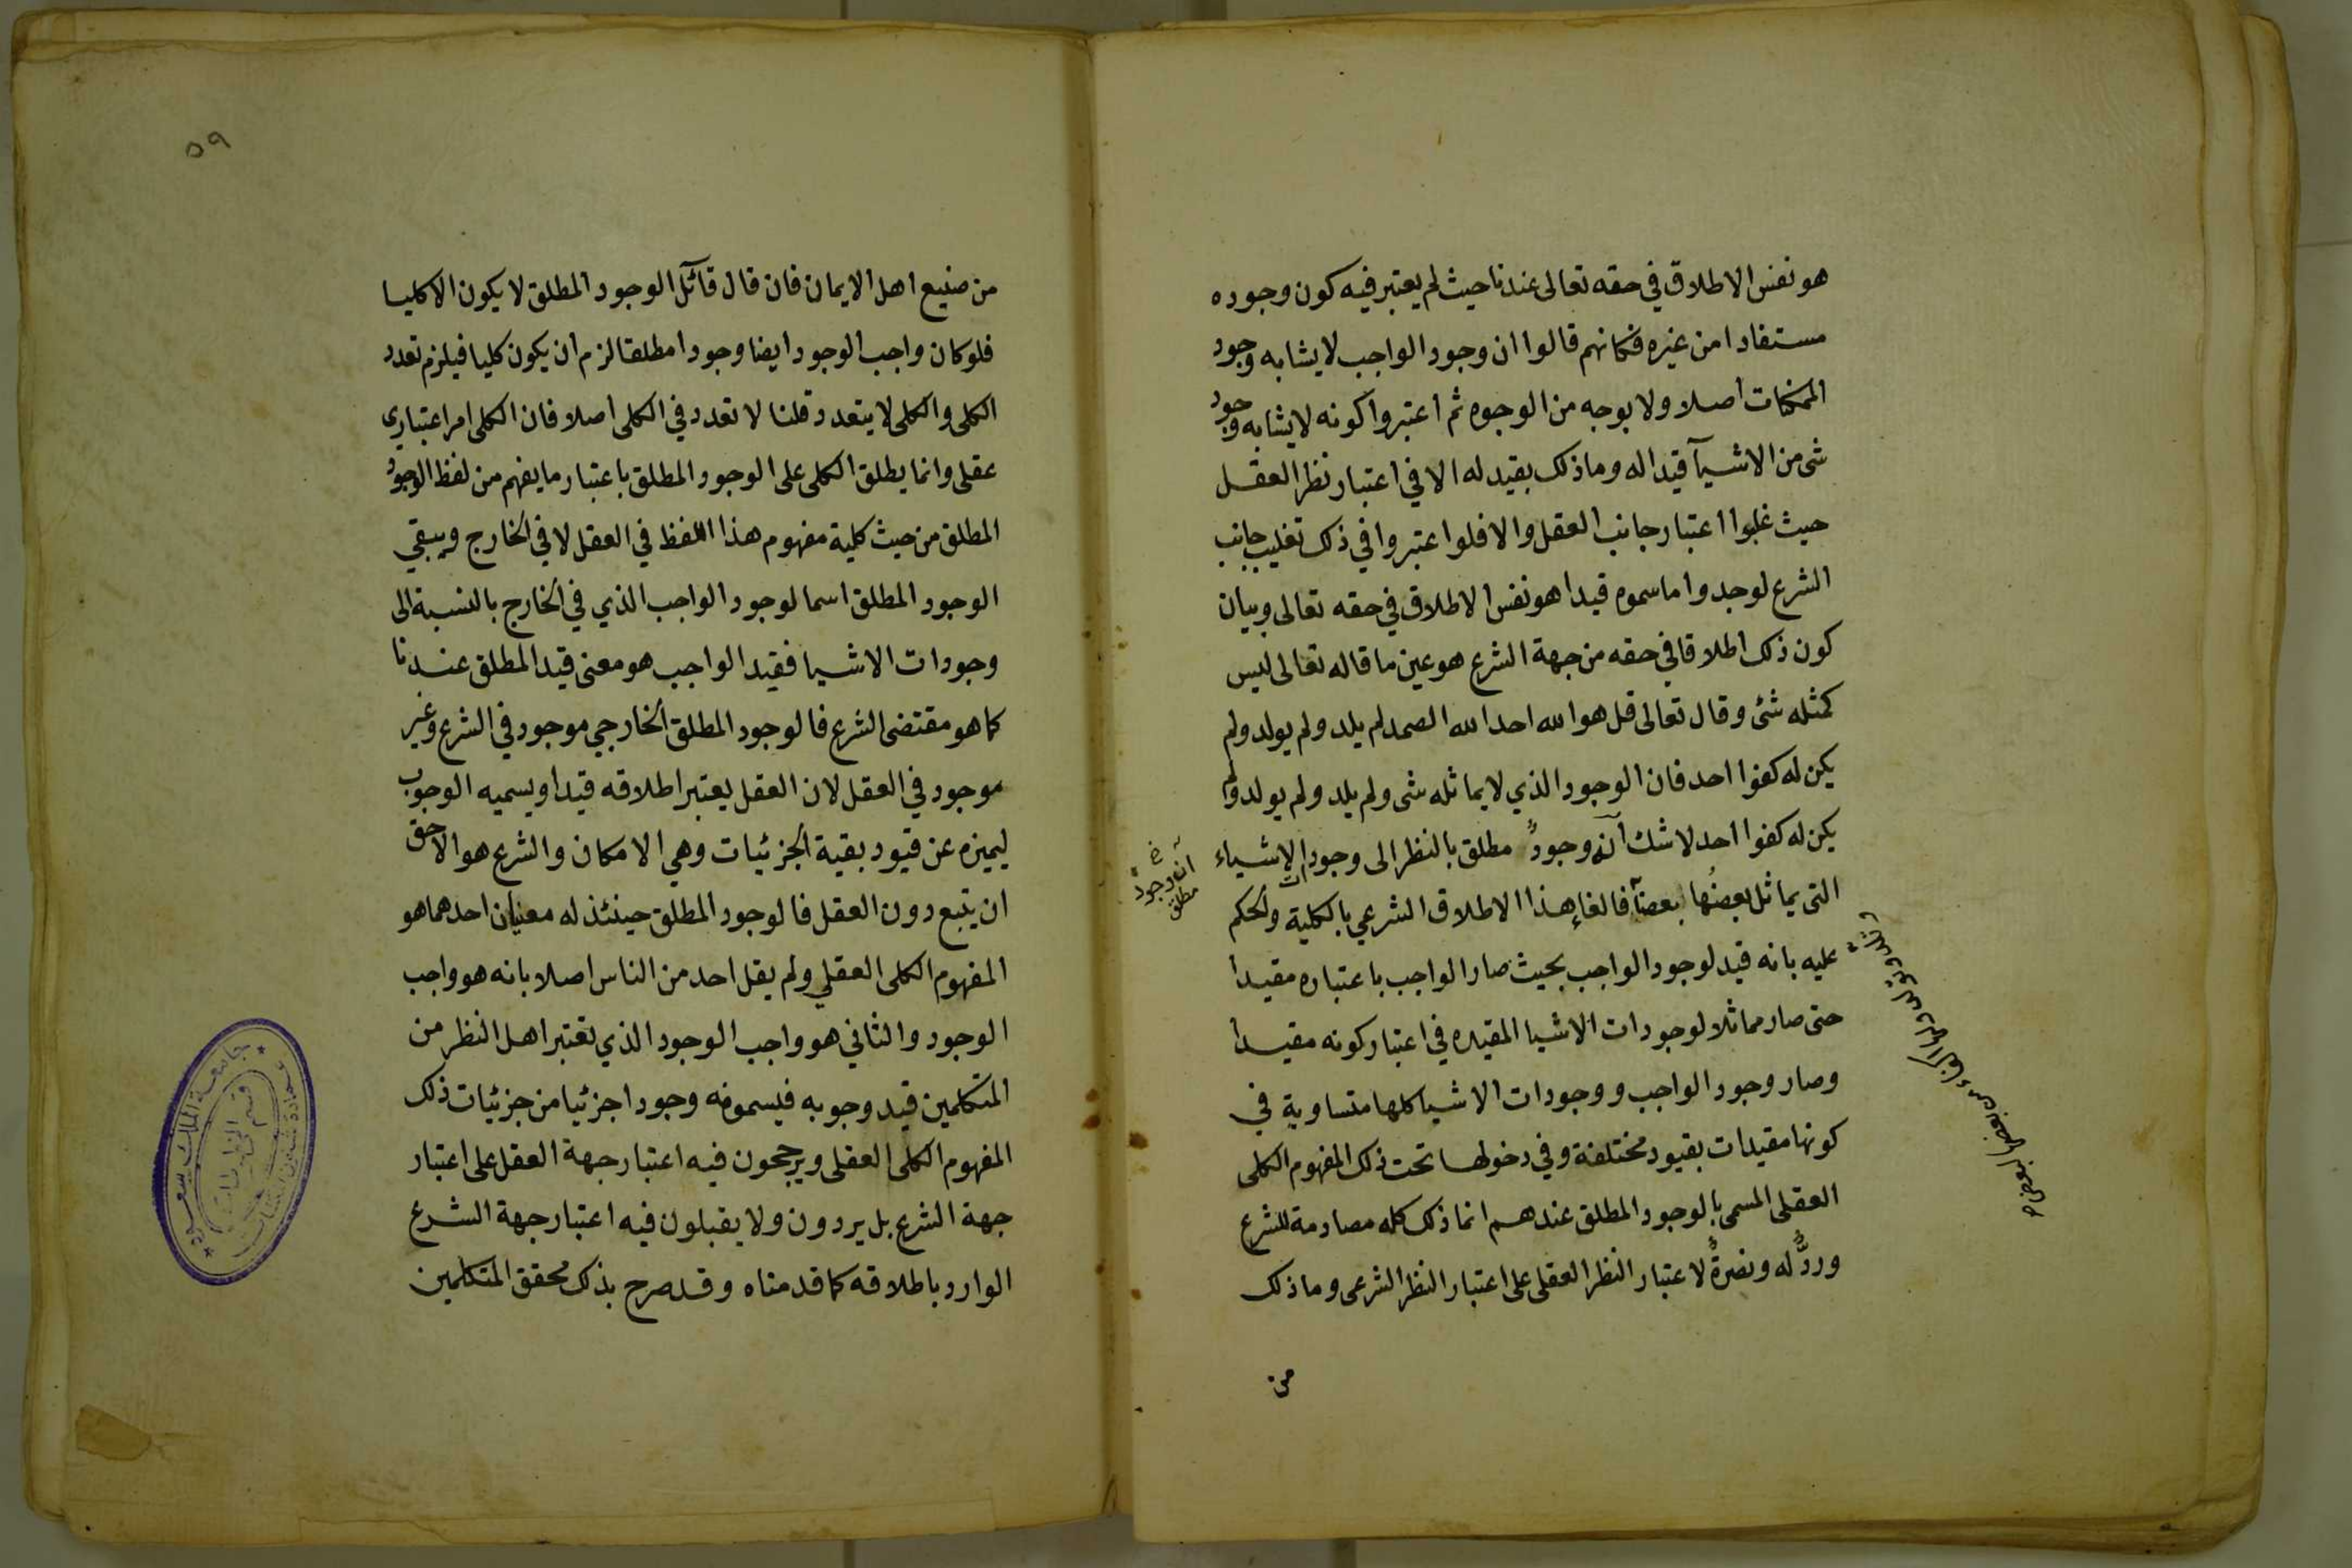 هو نفس الاطلاق في حقه تعالى عندنا حيث لم يعتبر فيه كون وجوده
مستفادا من غيره فكانهم قالوا ان وجود الواجب لا يشابه وجود
الممكنات اصلا ولا بوجه من الوجوه ثم اعتبروا كونه لا يشابه وجود
شى من الاشيآ قيدا له وما ذلك بقيد له الا في اعتبار نظر العقل
حيث غلبوا اعتبار جانب العقل والا فلو اعتبروا في ذلك تغليب جانب
الشرع لوجدوا ما سموه قيدا هو نفس الاطلاق في حقه تعالى وبيان
كون ذلك اطلاقا في حقه من جهة الشرع هو عين ما قاله تعالى ليس
كمثله شئ وقال تعالى قل هو الله احد الله الصمد لم يلد ولم يولد ولم
يكن له كفوا احد فان الوجود الذي لا يماثله شى ولم يلد ولم يولد ولم
يكن له كفوا احد لا شك آنه وجودٌ مطلق بالنظر الى وجودات الاشياء
التى يماثل بعضُها بعضآ فالغاء هذا الاطلاق الشرعي بالكلية والحكم
عليه بانه قيد لوجود الواجب بحيث صار الواجب باعتباره مقيدا
حتى صار مماثلا لوجودات الاشيا المقيده في اعتبار كونه مقيدا
وصار وجود الواجب ووجودات الاشيا كلها متساوية في
كونها مقيدات بقيود مختلفة وفي دخولها تحت ذلك المفهوم الكلى
العقلى المسمى بالوجود المطلق عندهم انما ذلك كله مصادمة للشرع
وردٌّ له ونصرةٌ لاعتبار النظر العقلى على اعتبار النظر الشرعى وما ذلك
من
آنه وجودٌ
مطلق
٥٩
من صنيع اهل الايمان فان قال قآئل الوجود المطلق لا يكون الا كليا
فلو كان واجب الوجود ايضا وجودا مطلقا لزم ان يكون كليا فيلزم تعدد
الكلى والكلى لا يتعدد قلنا لا تعدد في الكلى اصلا فان الكلى امر اعتبارى
عقلى وانما يطلق الكلى على الوجود المطلق باعتبار ما يفهم من لفظ الوجود
المطلق من حيث كلية مفهوم هذا اللفظ في العقل لا في الخارج ويبقي
الوجود المطلق اسما لوجود الواجب الذي في الخارج بالنسبة الى
وجودات الاشيا فقيد الواجب هو معنى قيد المطلق عندنا
كما هو مقتضى الشرع فالوجود المطلق الخارجي موجود في الشرع وغير
موجود في العقل لان العقل يعتبر اطلاقه قيدا ويسميه الوجوب
ليميزه عن قيود بقية الجزئيات وهي الامكان والشرع هو الاحق
ان يتبع دون العقل فالوجود المطلق حينئذ له معنيان احدهما هو
المفهوم الكلى العقلي ولم يقل احد من الناس اصلا بانه هو واجب
الوجود والثاني هو واجب الوجود الذي تعتبر اهل النظر من
المتكلمين قيد وجوبه فيسمونه وجودا جزئيا من جزئيات ذلك
المفهوم الكلى العقلى ويرجحون فيه اعتبار جهة العقل على اعتبار
جهة الشرع بل يردون ولا يقبلون فيه اعتبار جهة الشرع
الوارد باطلاقه كما قدمناه وقد صرح بذلك محقق المتكلمين
جامعة الملك سعود
قسم المخطوطات